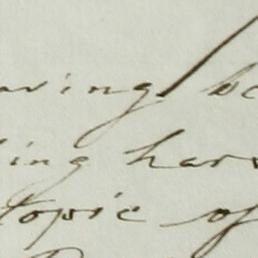 aving be
ing har
topic of